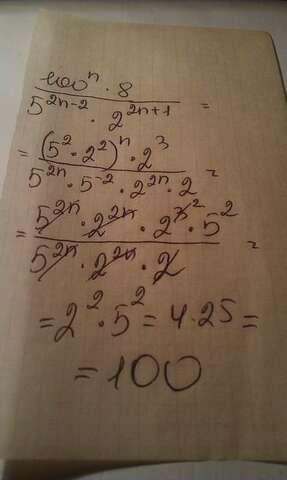 100ⁿ · 8
5²ⁿ⁻² · 2²ⁿ⁺¹ =
= (5² · 2²)ⁿ · 2³
5²ⁿ · 5⁻² · 2²ⁿ · 2 =
= 5²ⁿ · 2²ⁿ · 2³ ² · 5²
5²ⁿ · 2²ⁿ · 2 =
= 2² · 5² = 4 · 25 =
= 100